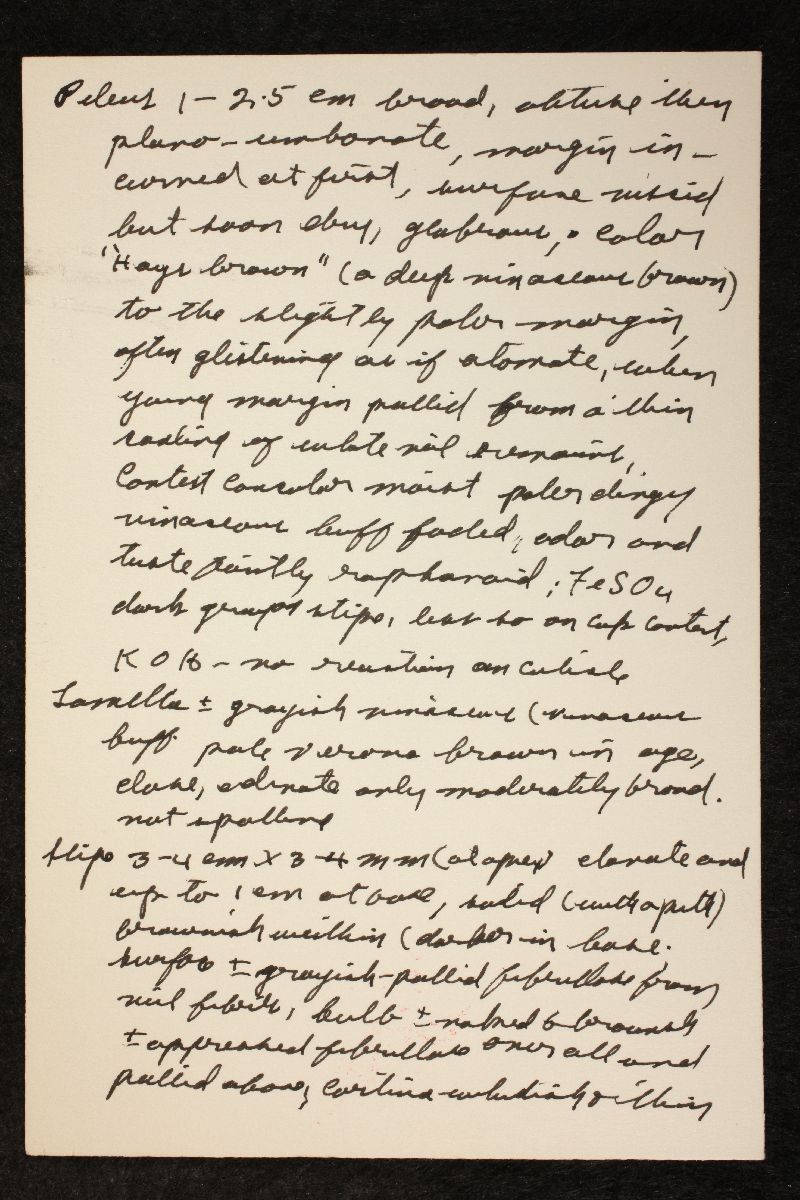 Pileus 1–2.5 cm broad, obtuse then
plano-umbonate, margin in-
curved at first, surface viscid
but soon dry, glabrous, color
"Hays brown" (a deep vinaceous brown)
to the slightly paler margin,
often glistening as if atomate, when
young margin pallid from a thin
coating of white veil remains,
Context concolor moist paler dingy
vinaceous buff faded, odor and
taste faintly raphanoid; FeSO4
dark gray stipe, less so on cap context,
KOH – no reaction on cuticle
Lamellae ± grayish vinaceous (vinaceous
buff pale verona brown in age,
close, adnate only moderately broad.
not spotting
Stipe 3-4 cm x 3-4 mm (at apex) clavate and
up to 1 cm at base, solid (with a pith)
brownish within (darker in base.
surface ± grayish-pallid fibrillose from
veil fibrils, bulb ± naked & brownish
± appressed fibrillose over all and
pallid above, cortina whitish & thin